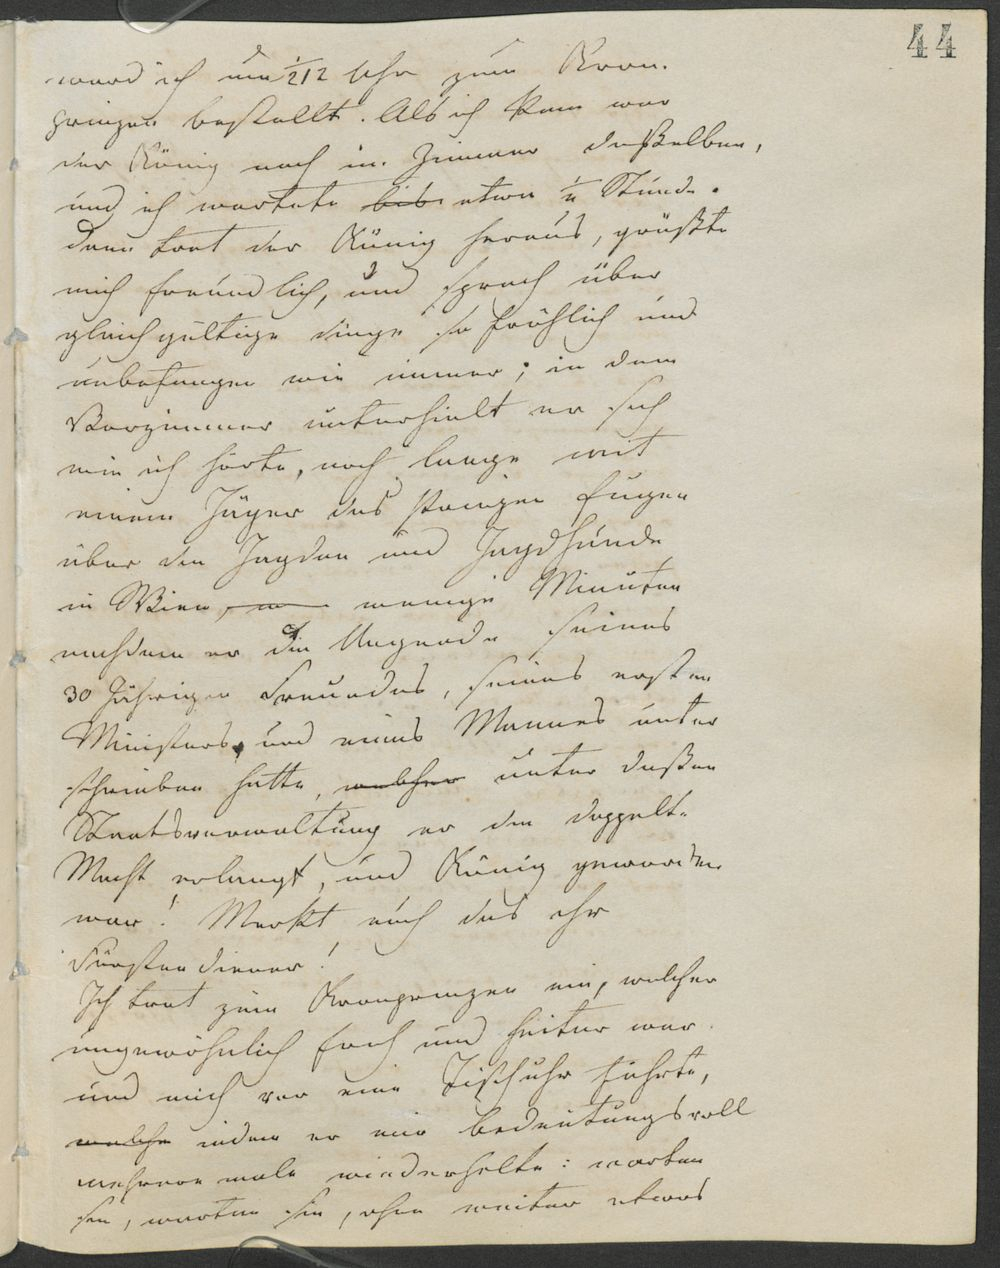 44
ward ich um 1/2 12 Uhr zum Kron-
prinzen bestellt. Als ich kam war
der König noch im Zimmer deßelben,
und ich wartete bis etwa 1/4 Stunde.
dann trat der König heraus, grüßte
mich freundlich, und sprach über
gleichgültige dinge so fröhlich und
unbefangen wie immer; in dem
Vorzimmer unterhielt er sich
wie ich hörte, noch lange mit
einem Jäger des Prinzen Eugen
über den Jagden und Jagdhunde
in Wien, wenige Minuten
nachdem er die Ungnade seines
30 jährigen Freundes, seines ersten
Ministers, und eines Mannes unter
schrieben hatte, welcher unter deßen
Staatsverwaltung er die doppelte
Macht erlangt, und König geworden
war! Merkt euch das ihr
Fürstendiener!
Ich trat zum Kronprinzen ein, welcher
ungewöhnlich froh und heiter war
und mich vor eine Tischuhr führte,
welche indem er mir bedeutungsvoll
mehrere male wiederholte: warten
sie, warten sie, ohne weiter etwas